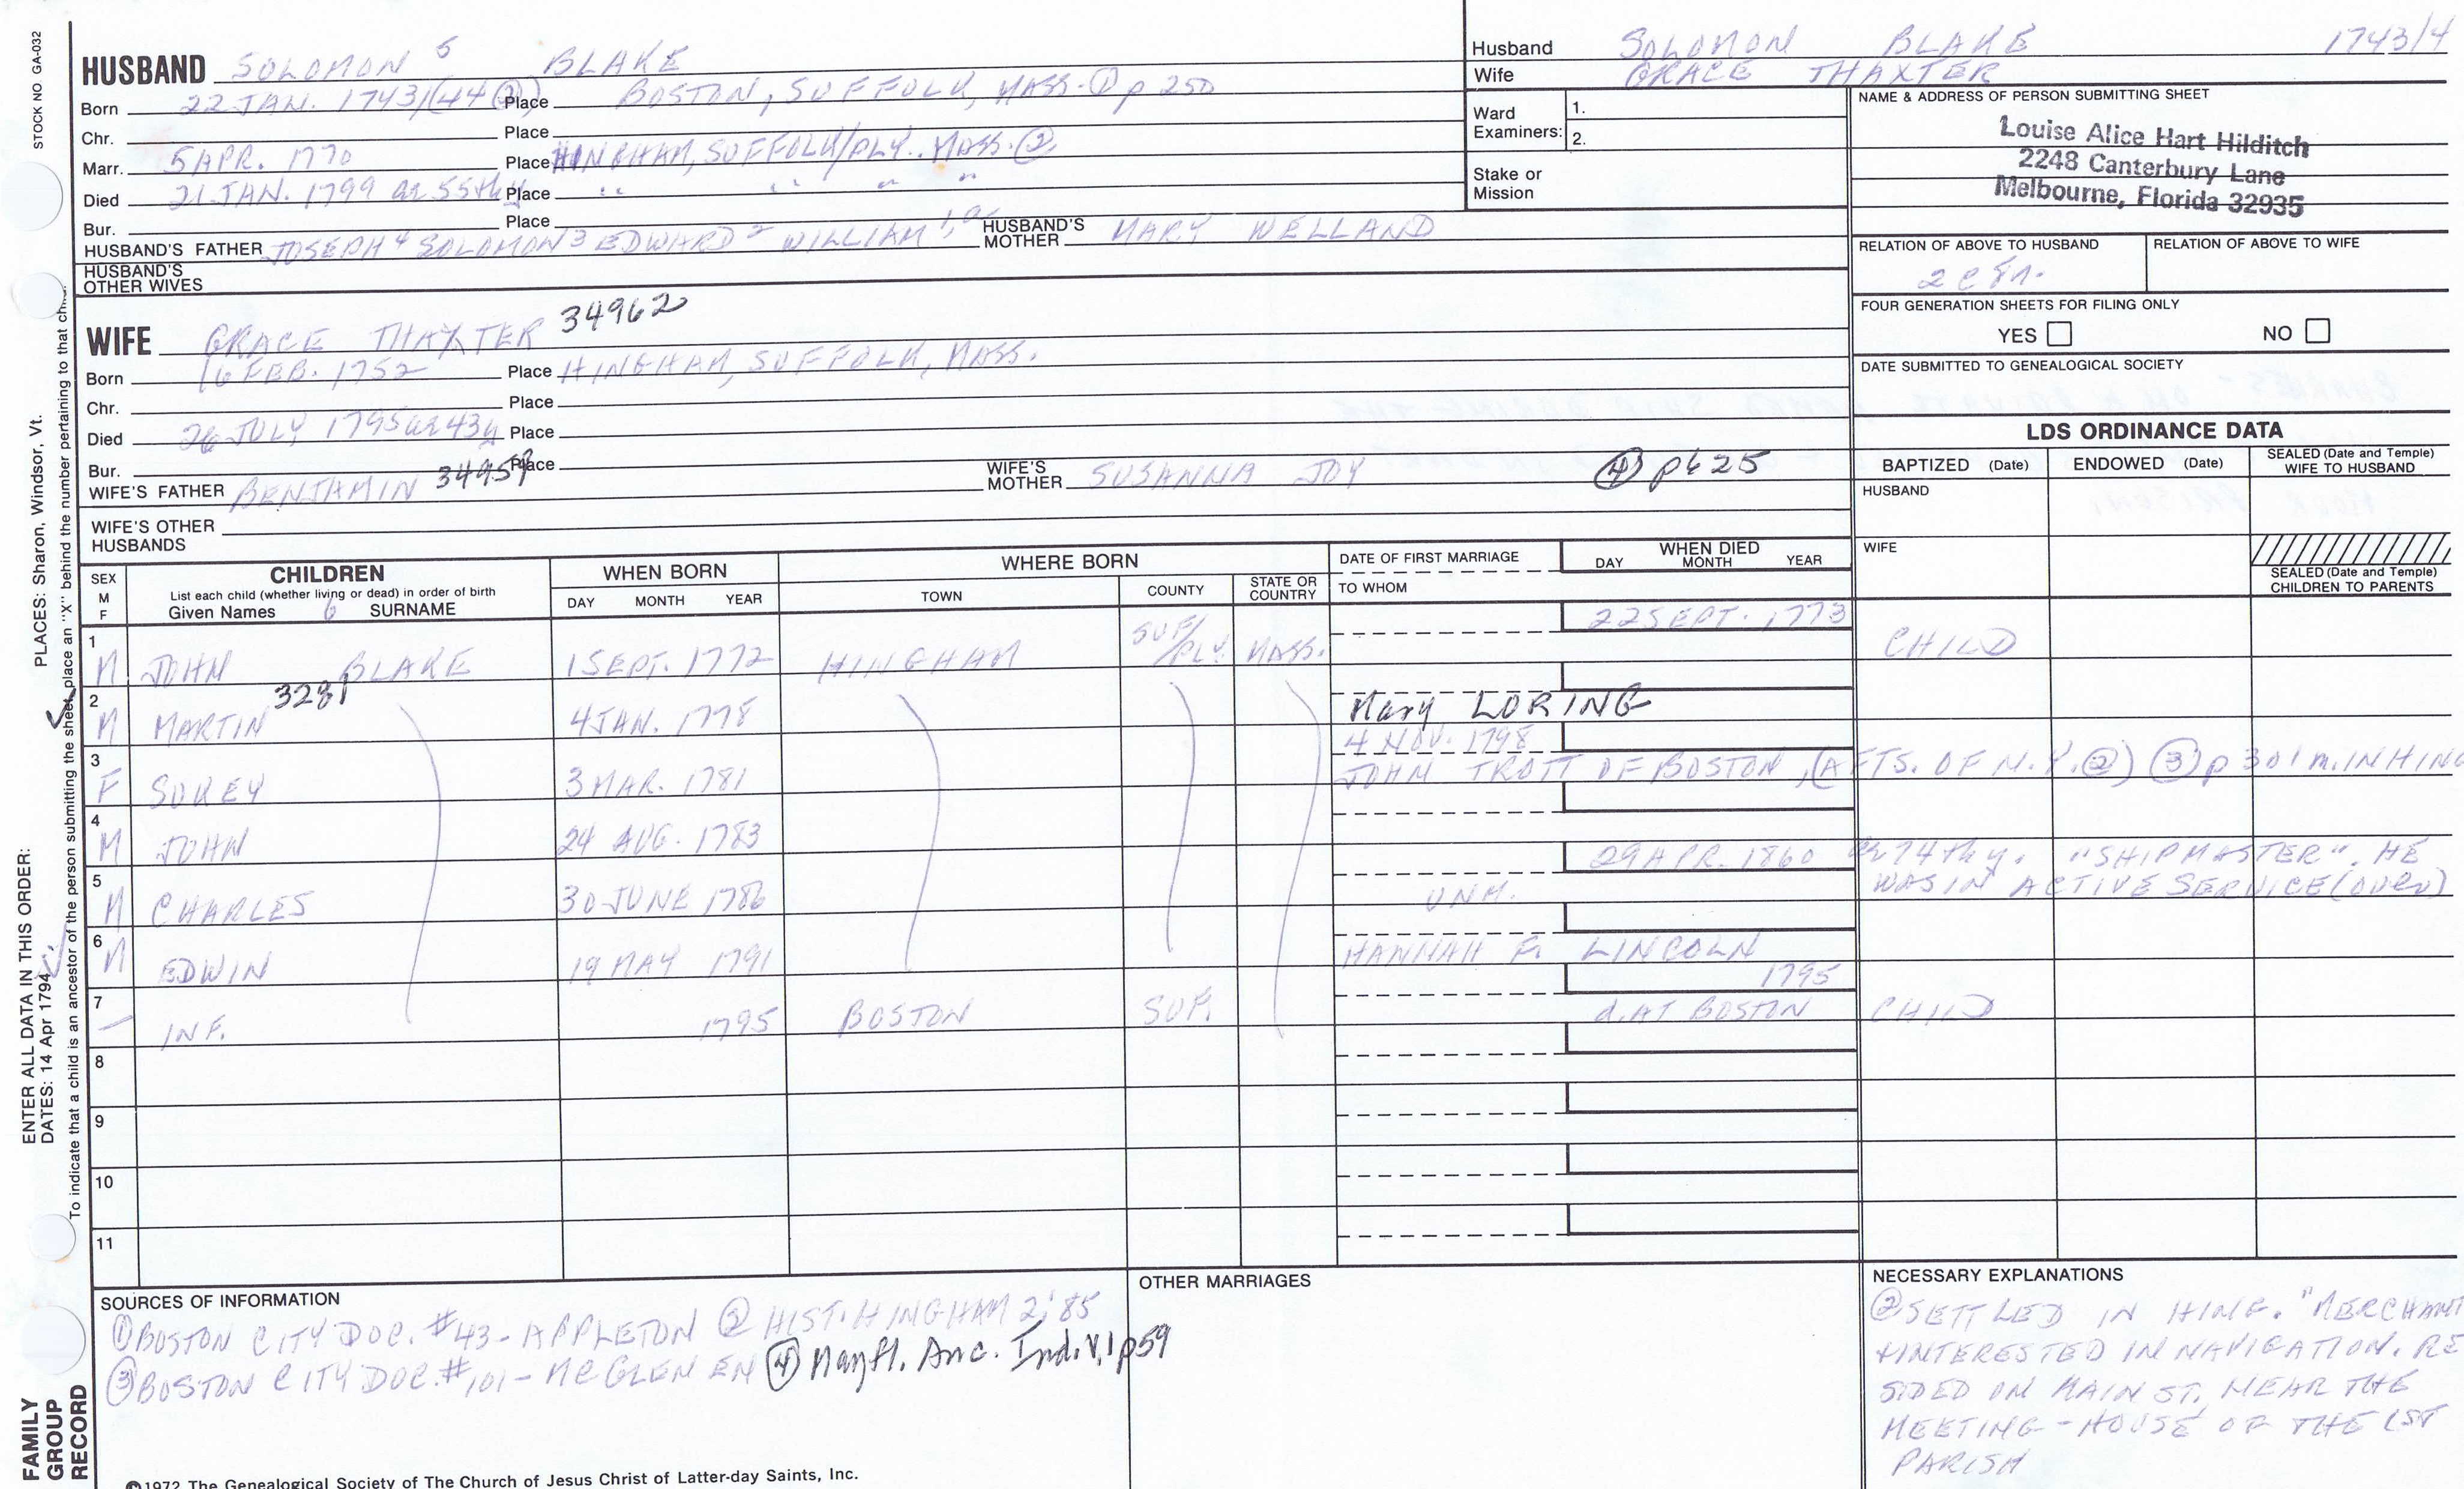 STOCK NO. GA-032
HUSBAND SOLOMON 5 BLAKE
Born 22 JAN. 1743/(44 ②) Place BOSTON, SUFFOLK, MASS. ① p 250
Chr. Place
Marr. 5 APR. 1770 Place HINGHAM, SUFFOLK/PLY. MASS. ②
Died 21 JAN. 1799 ae 55thy Place " " " "
Bur. Place
HUSBAND'S FATHER JOSEPH 4 SOLOMON 3 EDWARD 2 WILLIAM 1, a HUSBAND'S MOTHER MARY WELLAND
HUSBAND'S OTHER WIVES
Husband SOLOMON BLAKE 1743/4
Wife GRACE THAXTER
Ward Examiners: 1.
2.
Stake or Mission
NAME & ADDRESS OF PERSON SUBMITTING SHEET
Louise Alice Hart Hilditch
2248 Canterbury Lane
Melbourne, Florida 32935
RELATION OF ABOVE TO HUSBAND RELATION OF ABOVE TO WIFE
2 c
FOUR GENERATION SHEETS FOR FILING ONLY
YES NO
DATE SUBMITTED TO GENEALOGICAL SOCIETY
WIFE GRACE THAXTER 34962
Born 16 FEB. 1752 Place HINGHAM, SUFFOLK, MASS.
Chr. Place
Died 26 JULY 1795 ae 43y Place
Bur. Place
WIFE'S FATHER BENJAMIN 34959 WIFE'S MOTHER SUSANNA JOY ④ p625
WIFE'S OTHER HUSBANDS
LDS ORDINANCE DATA
BAPTIZED (Date) ENDOWED (Date) SEALED (Date and Temple) WIFE TO HUSBAND
HUSBAND
WIFE
SEALED (Date and Temple) CHILDREN TO PARENTS
SEX M F CHILDREN WHEN BORN WHERE BORN DATE OF FIRST MARRIAGE WHEN DIED
List each child (whether living or dead) in order of birth
Given Names 6 SURNAME DAY MONTH YEAR TOWN COUNTY STATE OR COUNTRY TO WHOM DAY MONTH YEAR
1 M JOHN BLAKE 1 SEPT. 1772 HINGHAM SUF/PLY. MASS. 22 SEPT. 1773 CHILD
2 M MARTIN 3281 4 JAN. 1778 Mary LORING
3 F SUKEY 3 MAR. 1781 4 NOV. 1798
JOHN TROTT OF BOSTON, (AFTS. OF N.Y. ②) ③ p 301 m. IN HING
4 M JOHN 24 AUG. 1783
5 M CHARLES 30 JUNE 1786 UNM. 29 APR. 1860 ae 74thy. "SHIPMASTER". HE
WAS IN ACTIVE SERVICE (OVER)
6 M EDWIN 19 MAY 1791 HANNAH F. LINCOLN
7 INF. 1795 BOSTON SUF. 1795
d. AT BOSTON CHILD
8
9
10
11
SOURCES OF INFORMATION
① BOSTON CITY DOC. #43 - APPLETON ② HIST. HINGHAM 2; 85
③ BOSTON CITY DOC. #101 - MCGLENEN ④ Mayfl. Anc. Ind. V.1 p59
OTHER MARRIAGES
NECESSARY EXPLANATIONS
② SETTLED IN HING. "MERCHANT
+ INTERESTED IN NAVIGATION. RE
SIDED ON MAIN ST, NEAR THE
MEETING-HOUSE OF THE 1ST
PARISH
ENTER ALL DATA IN THIS ORDER:
DATES: 14 Apr 1794 PLACES: Sharon, Windsor, Vt.
To indicate that a child is an ancestor of the person submitting the sheet, place an "X" behind the number pertaining to that child.
FAMILY GROUP RECORD
©1972 The Genealogical Society of The Church of Jesus Christ of Latter-day Saints, Inc.